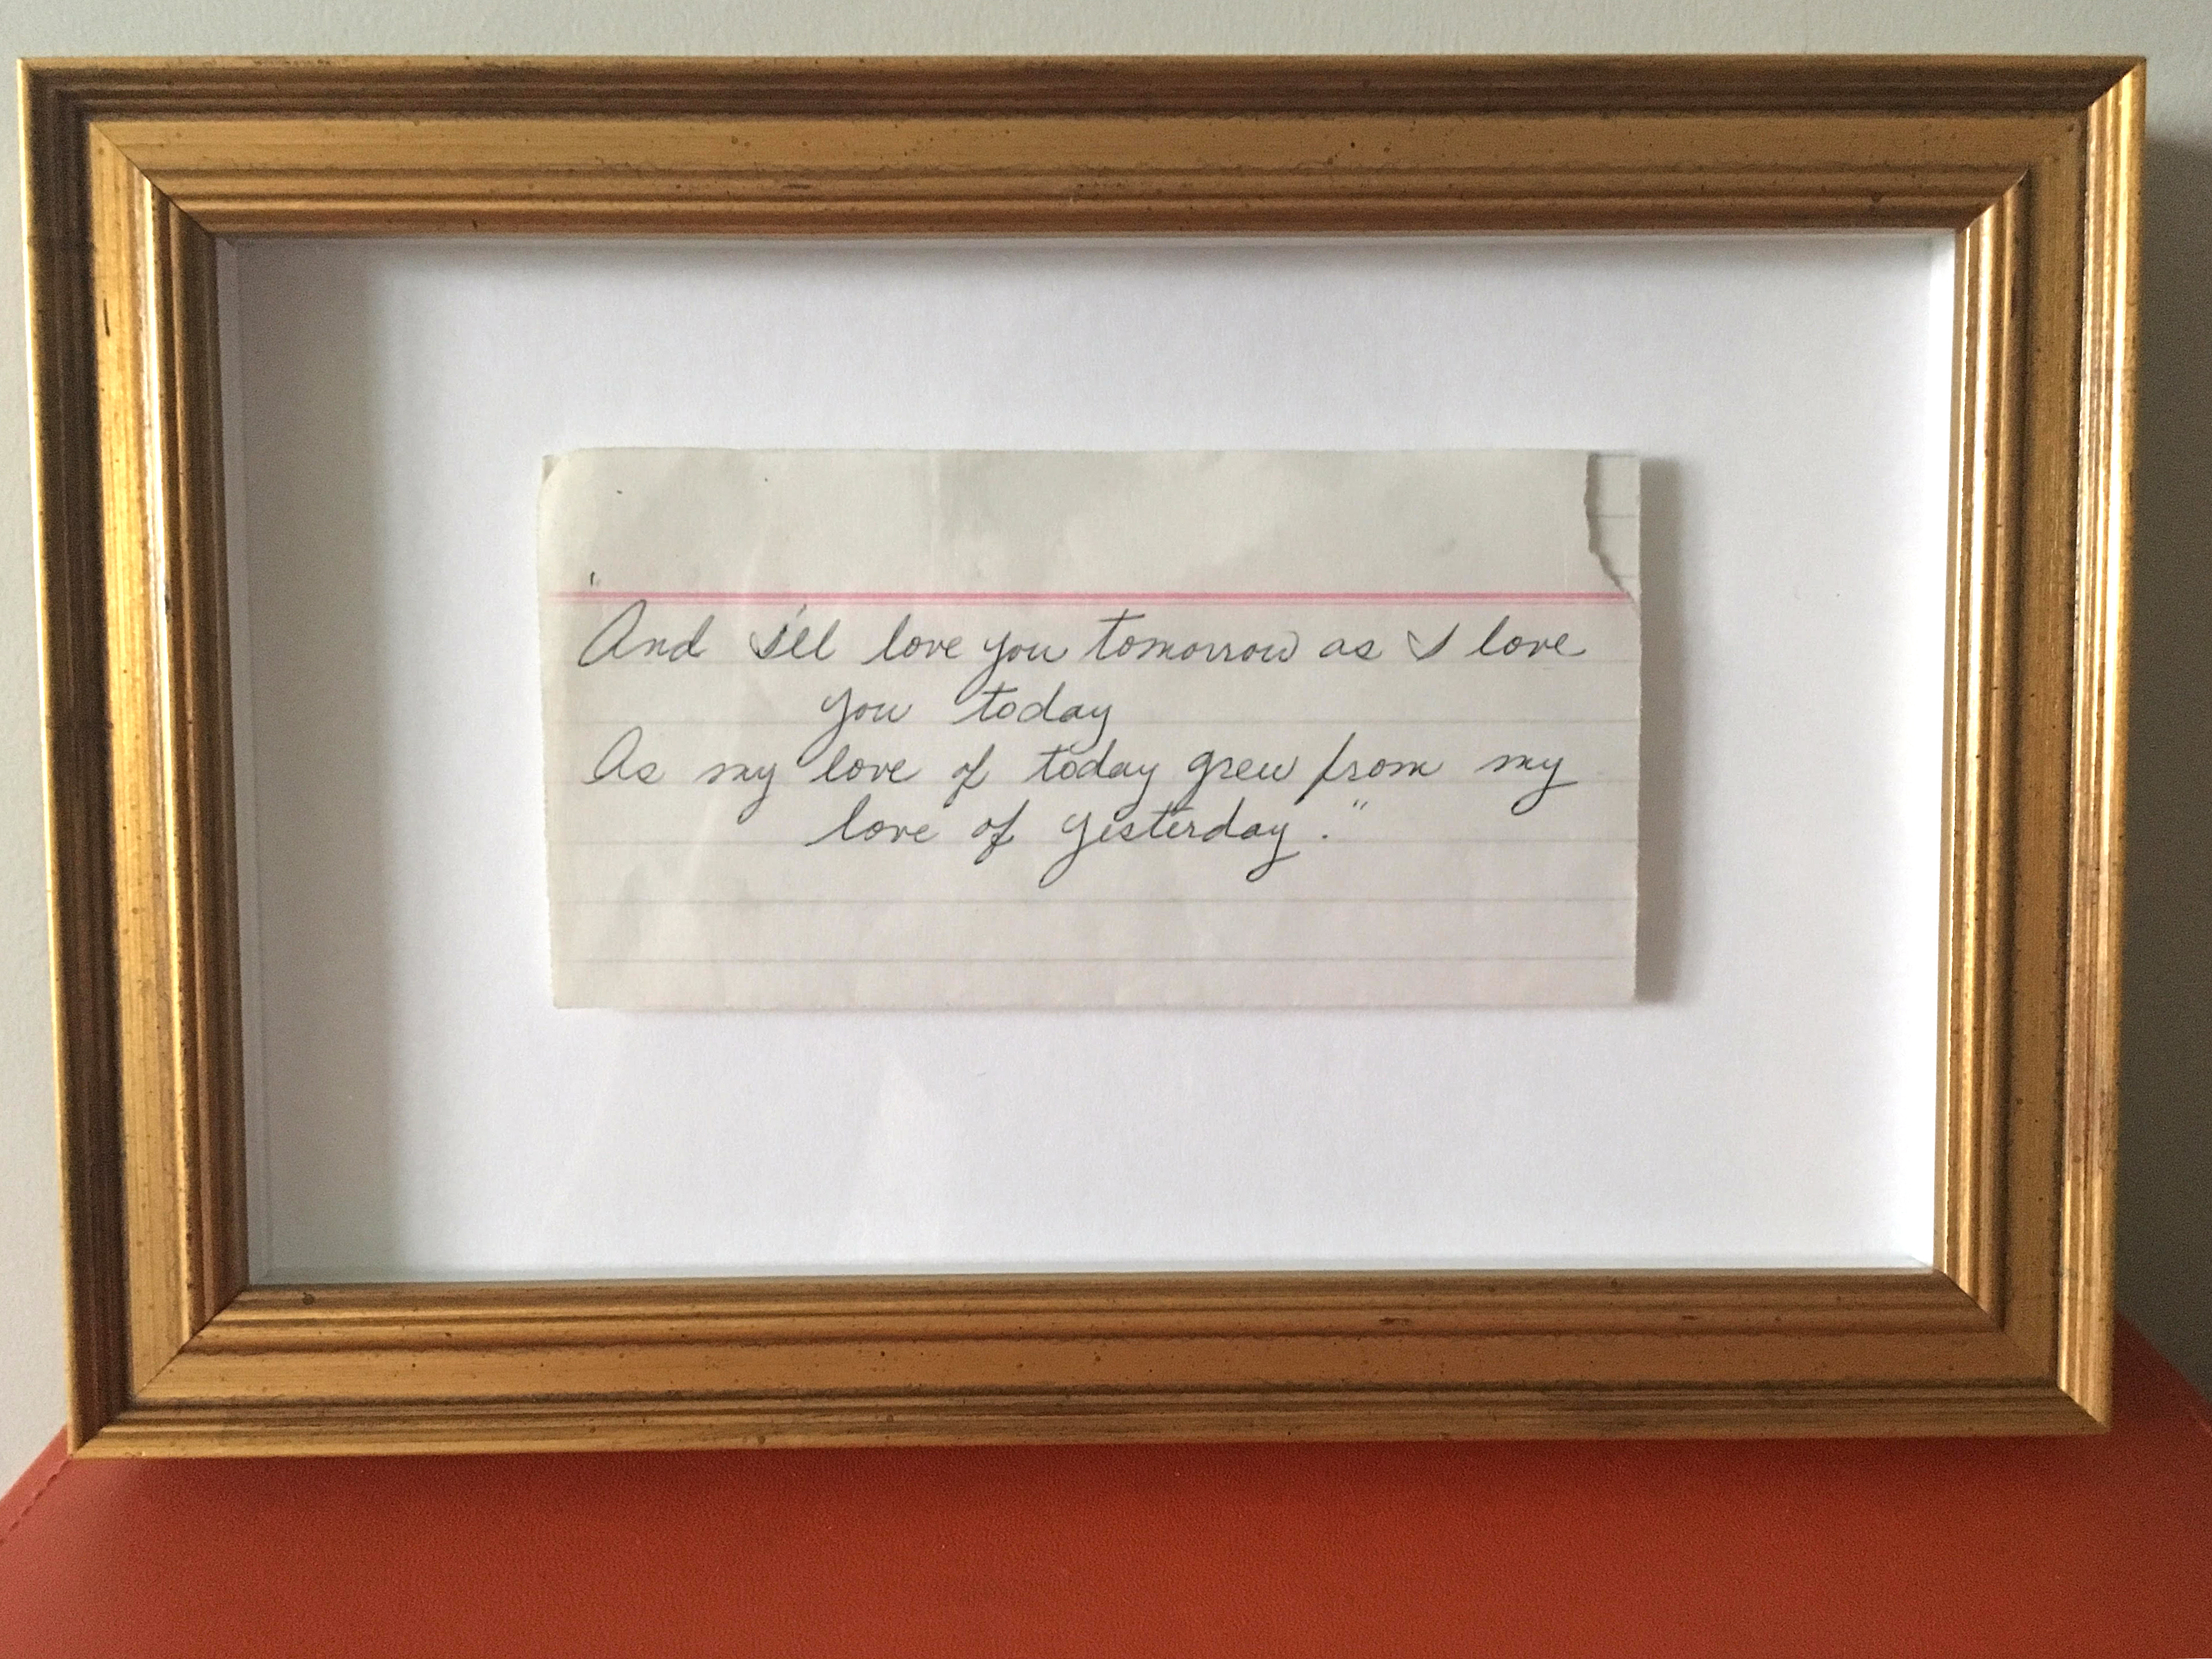 "And I'll love you tomorrow as I love
you today
As my love of today grew from my
love of yesterday."